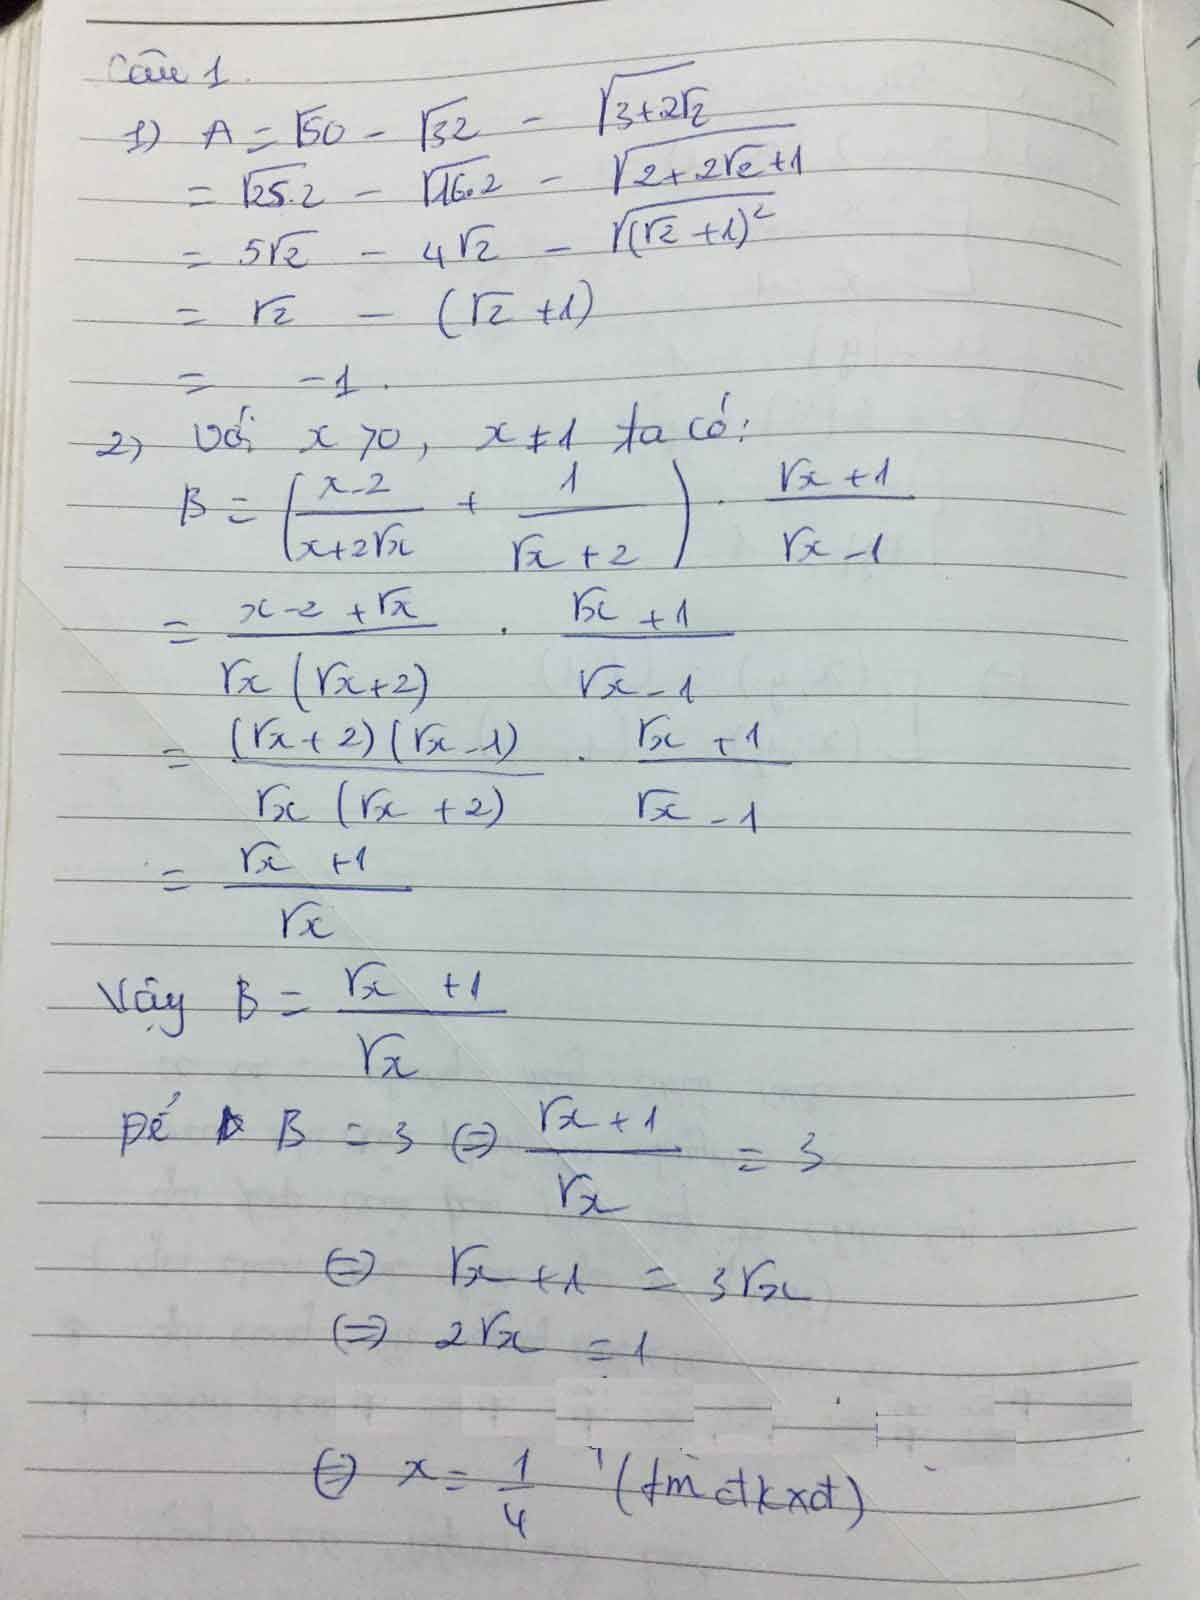 Câu 1.
1) A = √50 - √32 - √(3+2√2)
= √(25.2) - √(16.2) - √(2+2√2+1)
= 5√2 - 4√2 - √((√2+1)²)
= √2 - (√2+1)
= -1.
2) Với x>0, x≠1 ta có:
B = ((x-2)/(x+2√x) + 1/(√x+2)) . (√x+1)/(√x-1)
= (x-2+√x)/(√x(√x+2)) . (√x+1)/(√x-1)
= ((√x+2)(√x-1))/(√x(√x+2)) . (√x+1)/(√x-1)
= (√x+1)/√x
Vậy B = (√x+1)/√x
Để B = 3 ⇔ (√x+1)/√x = 3
⇔ √x+1 = 3√x
⇔ 2√x = 1
⇔ x = 1/4 (tm đkxđ)